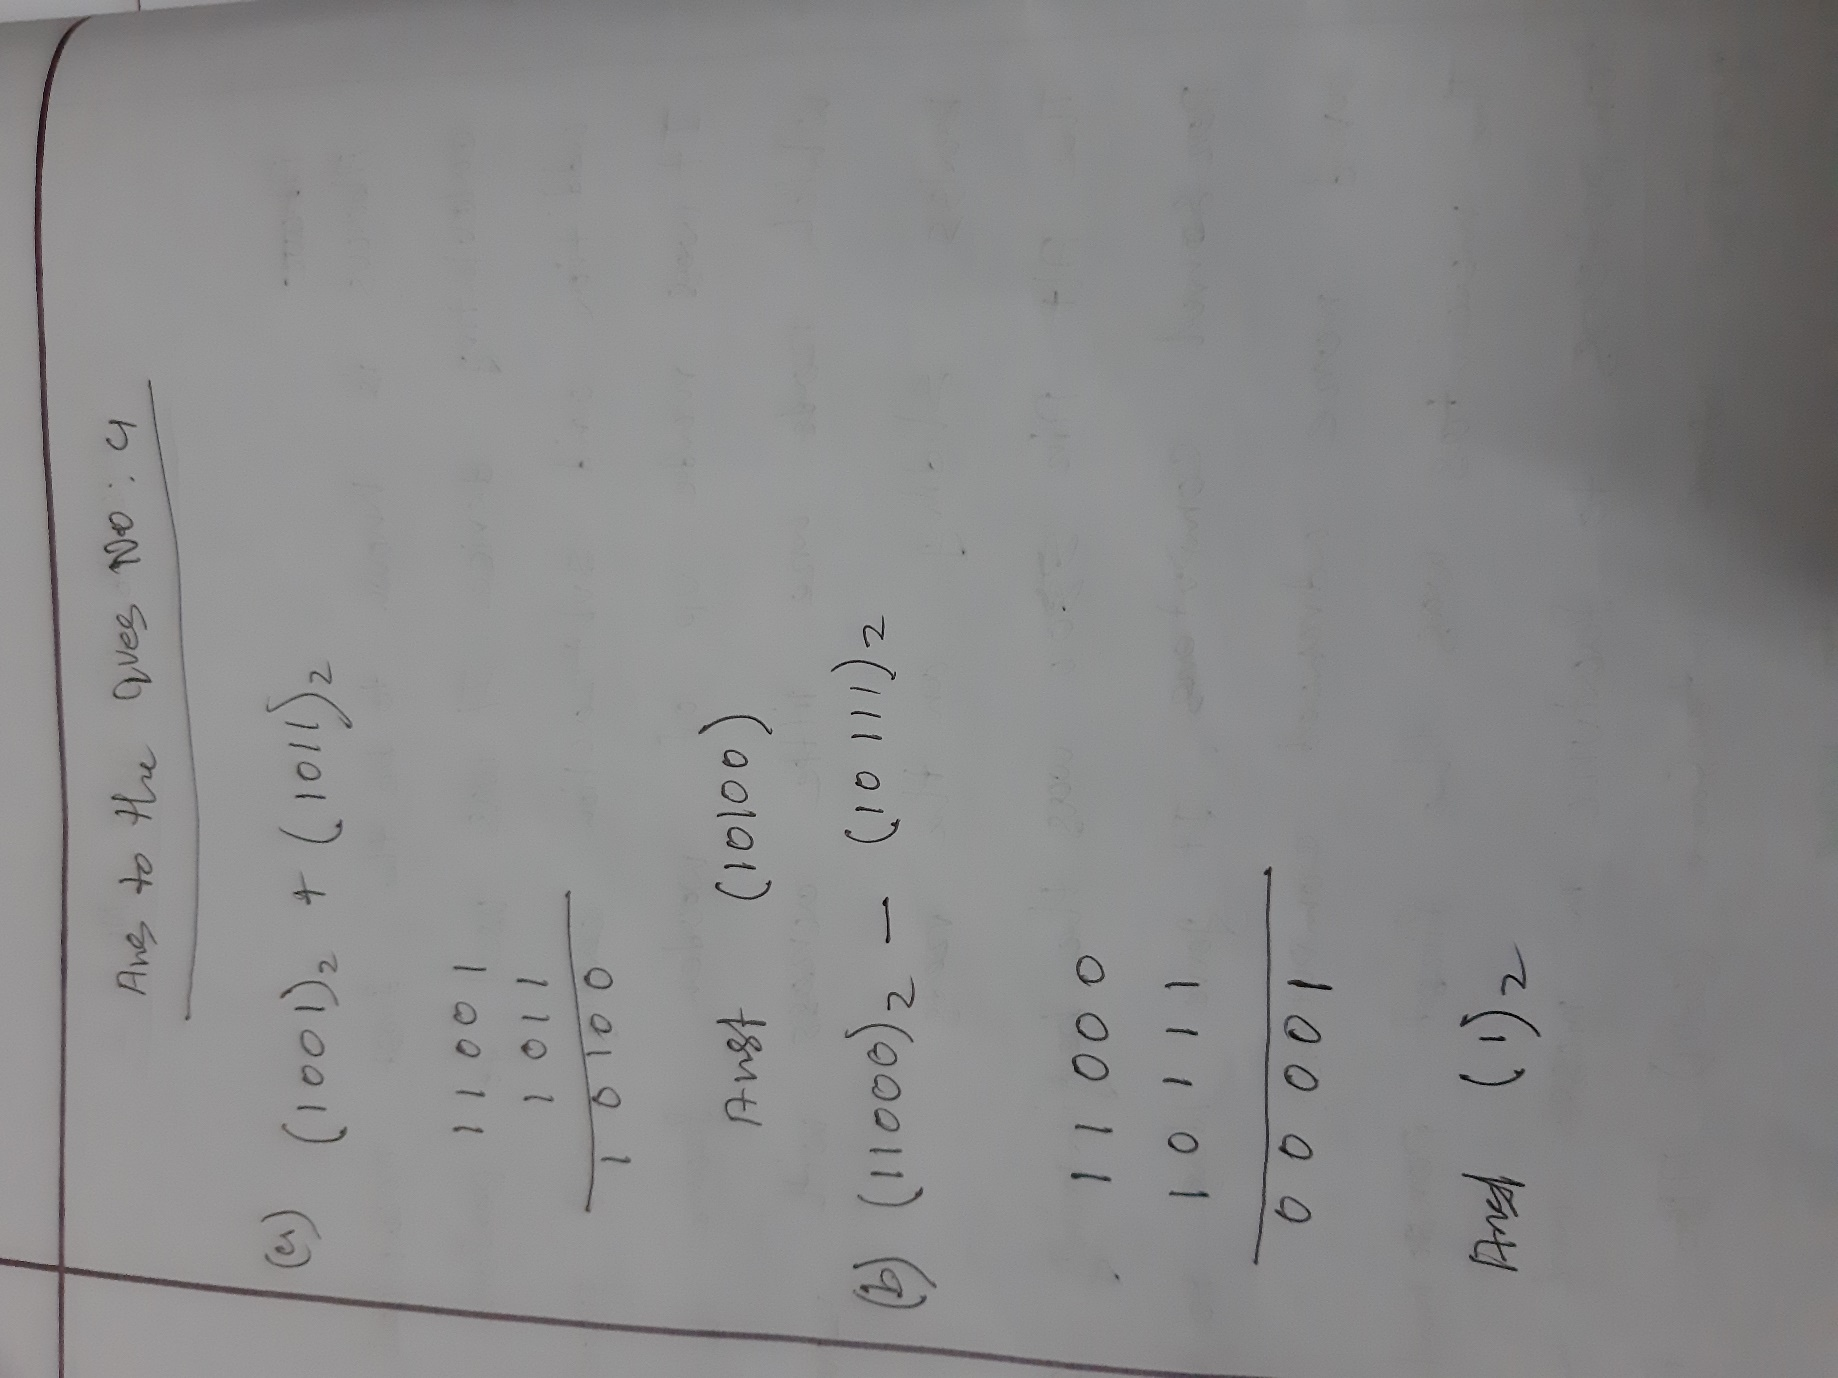 Ans to the Ques No: 4
(a) (1001)₂ + (1011)₂
1 1 0 0 1
1 0 1 1
1 0 1 0 0
Ans (10100)
(b) (11000)₂ — (10111)₂
1 1 0 0 0
1 0 1 1 1
0 0 0 0 1
Ans (1)₂